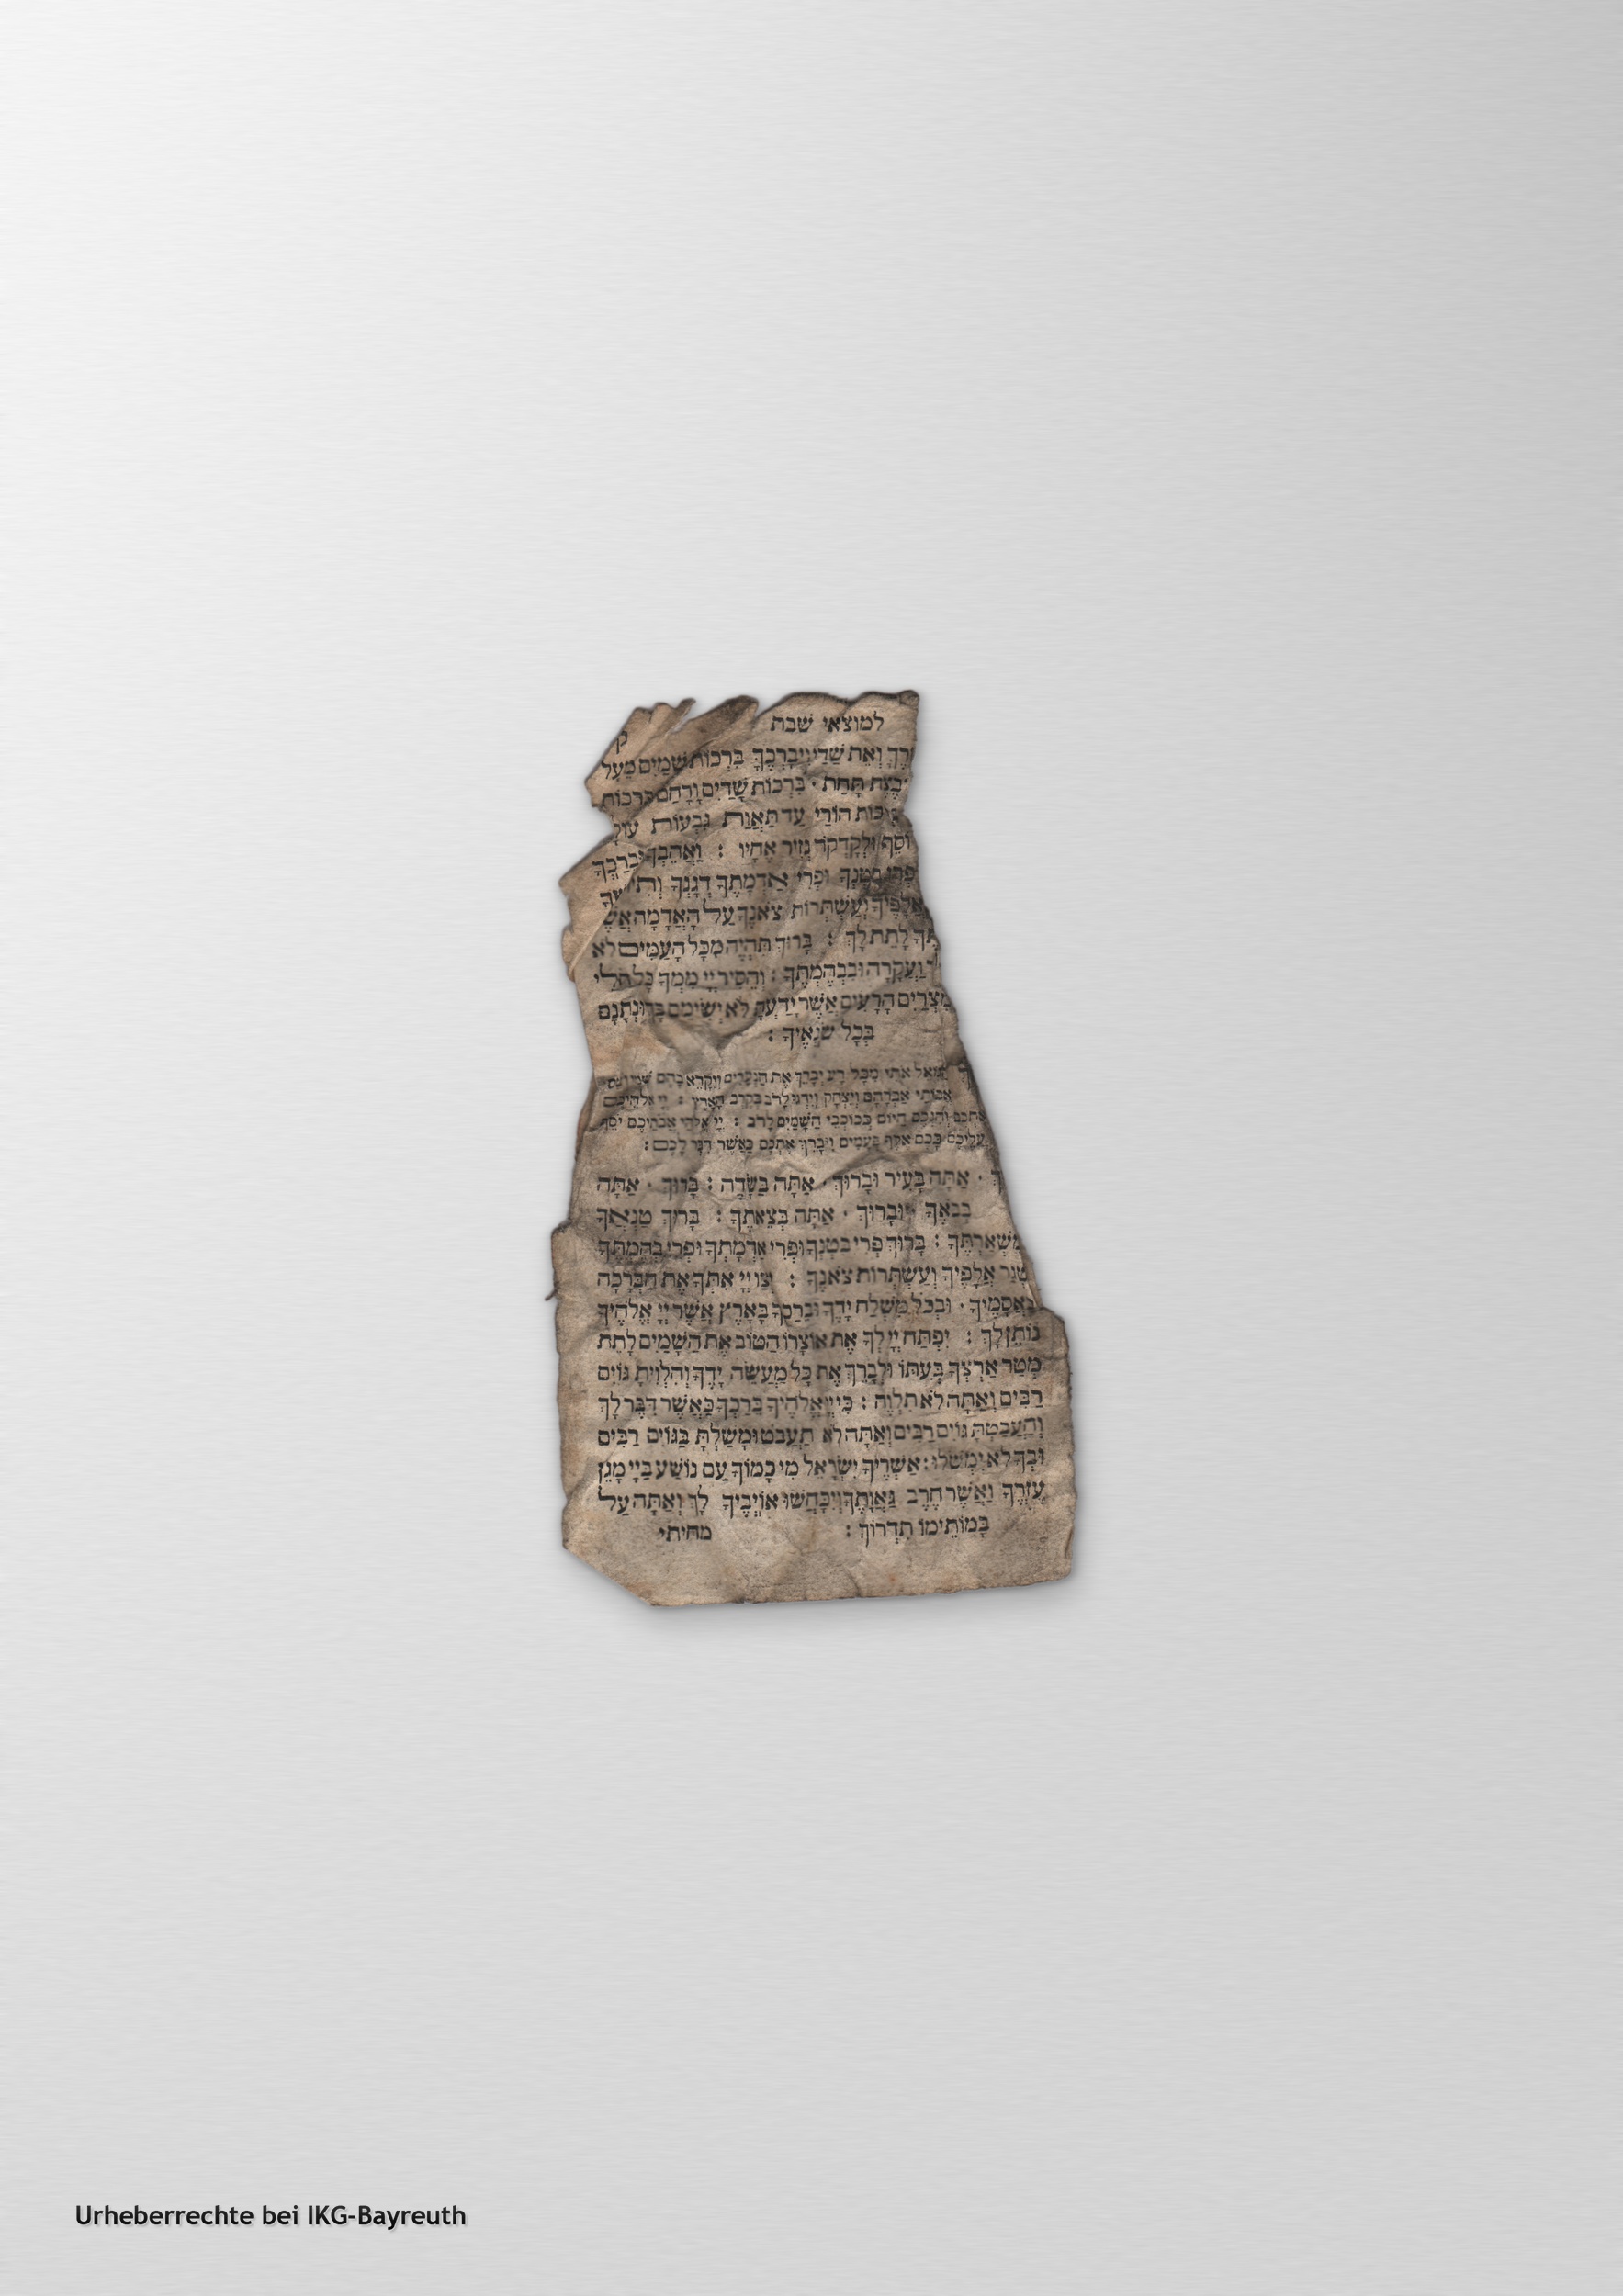 למוצאי שבת
ק
וְאֵת שַׁדַּי וִיבָרְכֶךָּ בִּרְכוֹת שָׁמַיִם מֵעָל
תָּחַת · בִּרְכוֹת שָׁדַיִם וָרָחַם בִּרְכוֹת
הוֹרַי עַד תַּאֲוַת גִּבְעוֹת עוֹלָם
וּלְקָדְקֹד נְזִיר אֶחָיו : וַאֲהֵבְךָ וּבֵרַכְךָ
וּפְרִי אַדְמָתֶךָ דְּגָנְךָ
אֲלָפֶיךָ וְעַשְׁתְּרוֹת צֹאנֶךָ עַל הָאֲדָמָה
לָתֶת לָךְ : בָּרוּךְ תִּהְיֶה מִכָּל הָעַמִּים לֹא
וַעֲקָרָה וּבִבְהֶמְתֶּךָ : וְהֵסִיר יְיָ מִמְּךָ כָּל חֹלִי
מִצְרַיִם הָרָעִים אֲשֶׁר יָדַעְתָּ לֹא יְשִׂימָם בָּךְ וּנְתָנָם
בְּכָל שׂנְאֶיךָ :
אֹתִי מִכָּל רָע יְבָרֵךְ אֶת הַנְּעָרִים וְיִקָּרֵא בָהֶם
אֲבוֹתַי אַבְרָהָם וְיִצְחָק וְיִדְגּוּ לָרֹב בְּקֶרֶב הָאָרֶץ : יְיָ אֱלֹהֵיכֶם
אֶתְכֶם וְהִנְּכֶם הַיּוֹם כְּכוֹכְבֵי הַשָּׁמַיִם לָרֹב : יְיָ אֱלֹהֵי אֲבֹתֵיכֶם יֹסֵף
עֲלֵיכֶם כָּכֶם אֶלֶף פְּעָמִים וִיבָרֵךְ אֶתְכֶם כַּאֲשֶׁר דִּבֶּר לָכֶם :
· אַתָּה בָּעִיר וּבָרוּךְ · אַתָּה בַּשָּׂדֶה : בָּרוּךְ · אַתָּה
בְּבֹאֶךָ וּבָרוּךְ · אַתָּה בְּצֵאתֶךָ : בָּרוּךְ טַנְאֲךָ
וּמִשְׁאַרְתֶּךָ : בָּרוּךְ פְּרִי בִטְנְךָ וּפְרִי אַדְמָתְךָ וּפְרִי בְהֶמְתֶּךָ
שְׁגַר אֲלָפֶיךָ וְעַשְׁתְּרוֹת צֹאנֶךָ : יְצַו יְיָ אִתְּךָ אֶת הַבְּרָכָה
בַּאֲסָמֶיךָ · וּבְכֹל מִשְׁלַח יָדֶךָ וּבֵרַכְךָ בָּאָרֶץ אֲשֶׁר יְיָ אֱלֹהֶיךָ
נוֹתֵן לָךְ : יִפְתַּח יְיָ לְךָ אֶת אוֹצָרוֹ הַטּוֹב אֶת הַשָּׁמַיִם לָתֵת
מְטַר אַרְצְךָ בְּעִתּוֹ וּלְבָרֵךְ אֶת כָּל מַעֲשֵׂה יָדֶךָ וְהִלְוִיתָ גּוֹיִם
רַבִּים וְאַתָּה לֹא תִלְוֶה : כִּי יְיָ אֱלֹהֶיךָ בֵּרַכְךָ כַּאֲשֶׁר דִּבֶּר לָךְ
וְהַעֲבַטְתָּ גּוֹיִם רַבִּים וְאַתָּה לֹא תַעֲבֹט וּמָשַׁלְתָּ בַּגּוֹיִם רַבִּים
וּבְךָ לֹא יִמְשֹׁלוּ : אַשְׁרֶיךָ יִשְׂרָאֵל מִי כָמוֹךָ עַם נוֹשַׁע בַּיְיָ מָגֵן
עֶזְרֶךָ וַאֲשֶׁר חֶרֶב גַּאֲוָתֶךָ וְיִכָּחֲשׁוּ אוֹיְבֶיךָ לָךְ וְאַתָּה עַל
בָּמוֹתֵימוֹ תִדְרוֹךְ : מחיתי
Urheberrechte bei IKG-Bayreuth